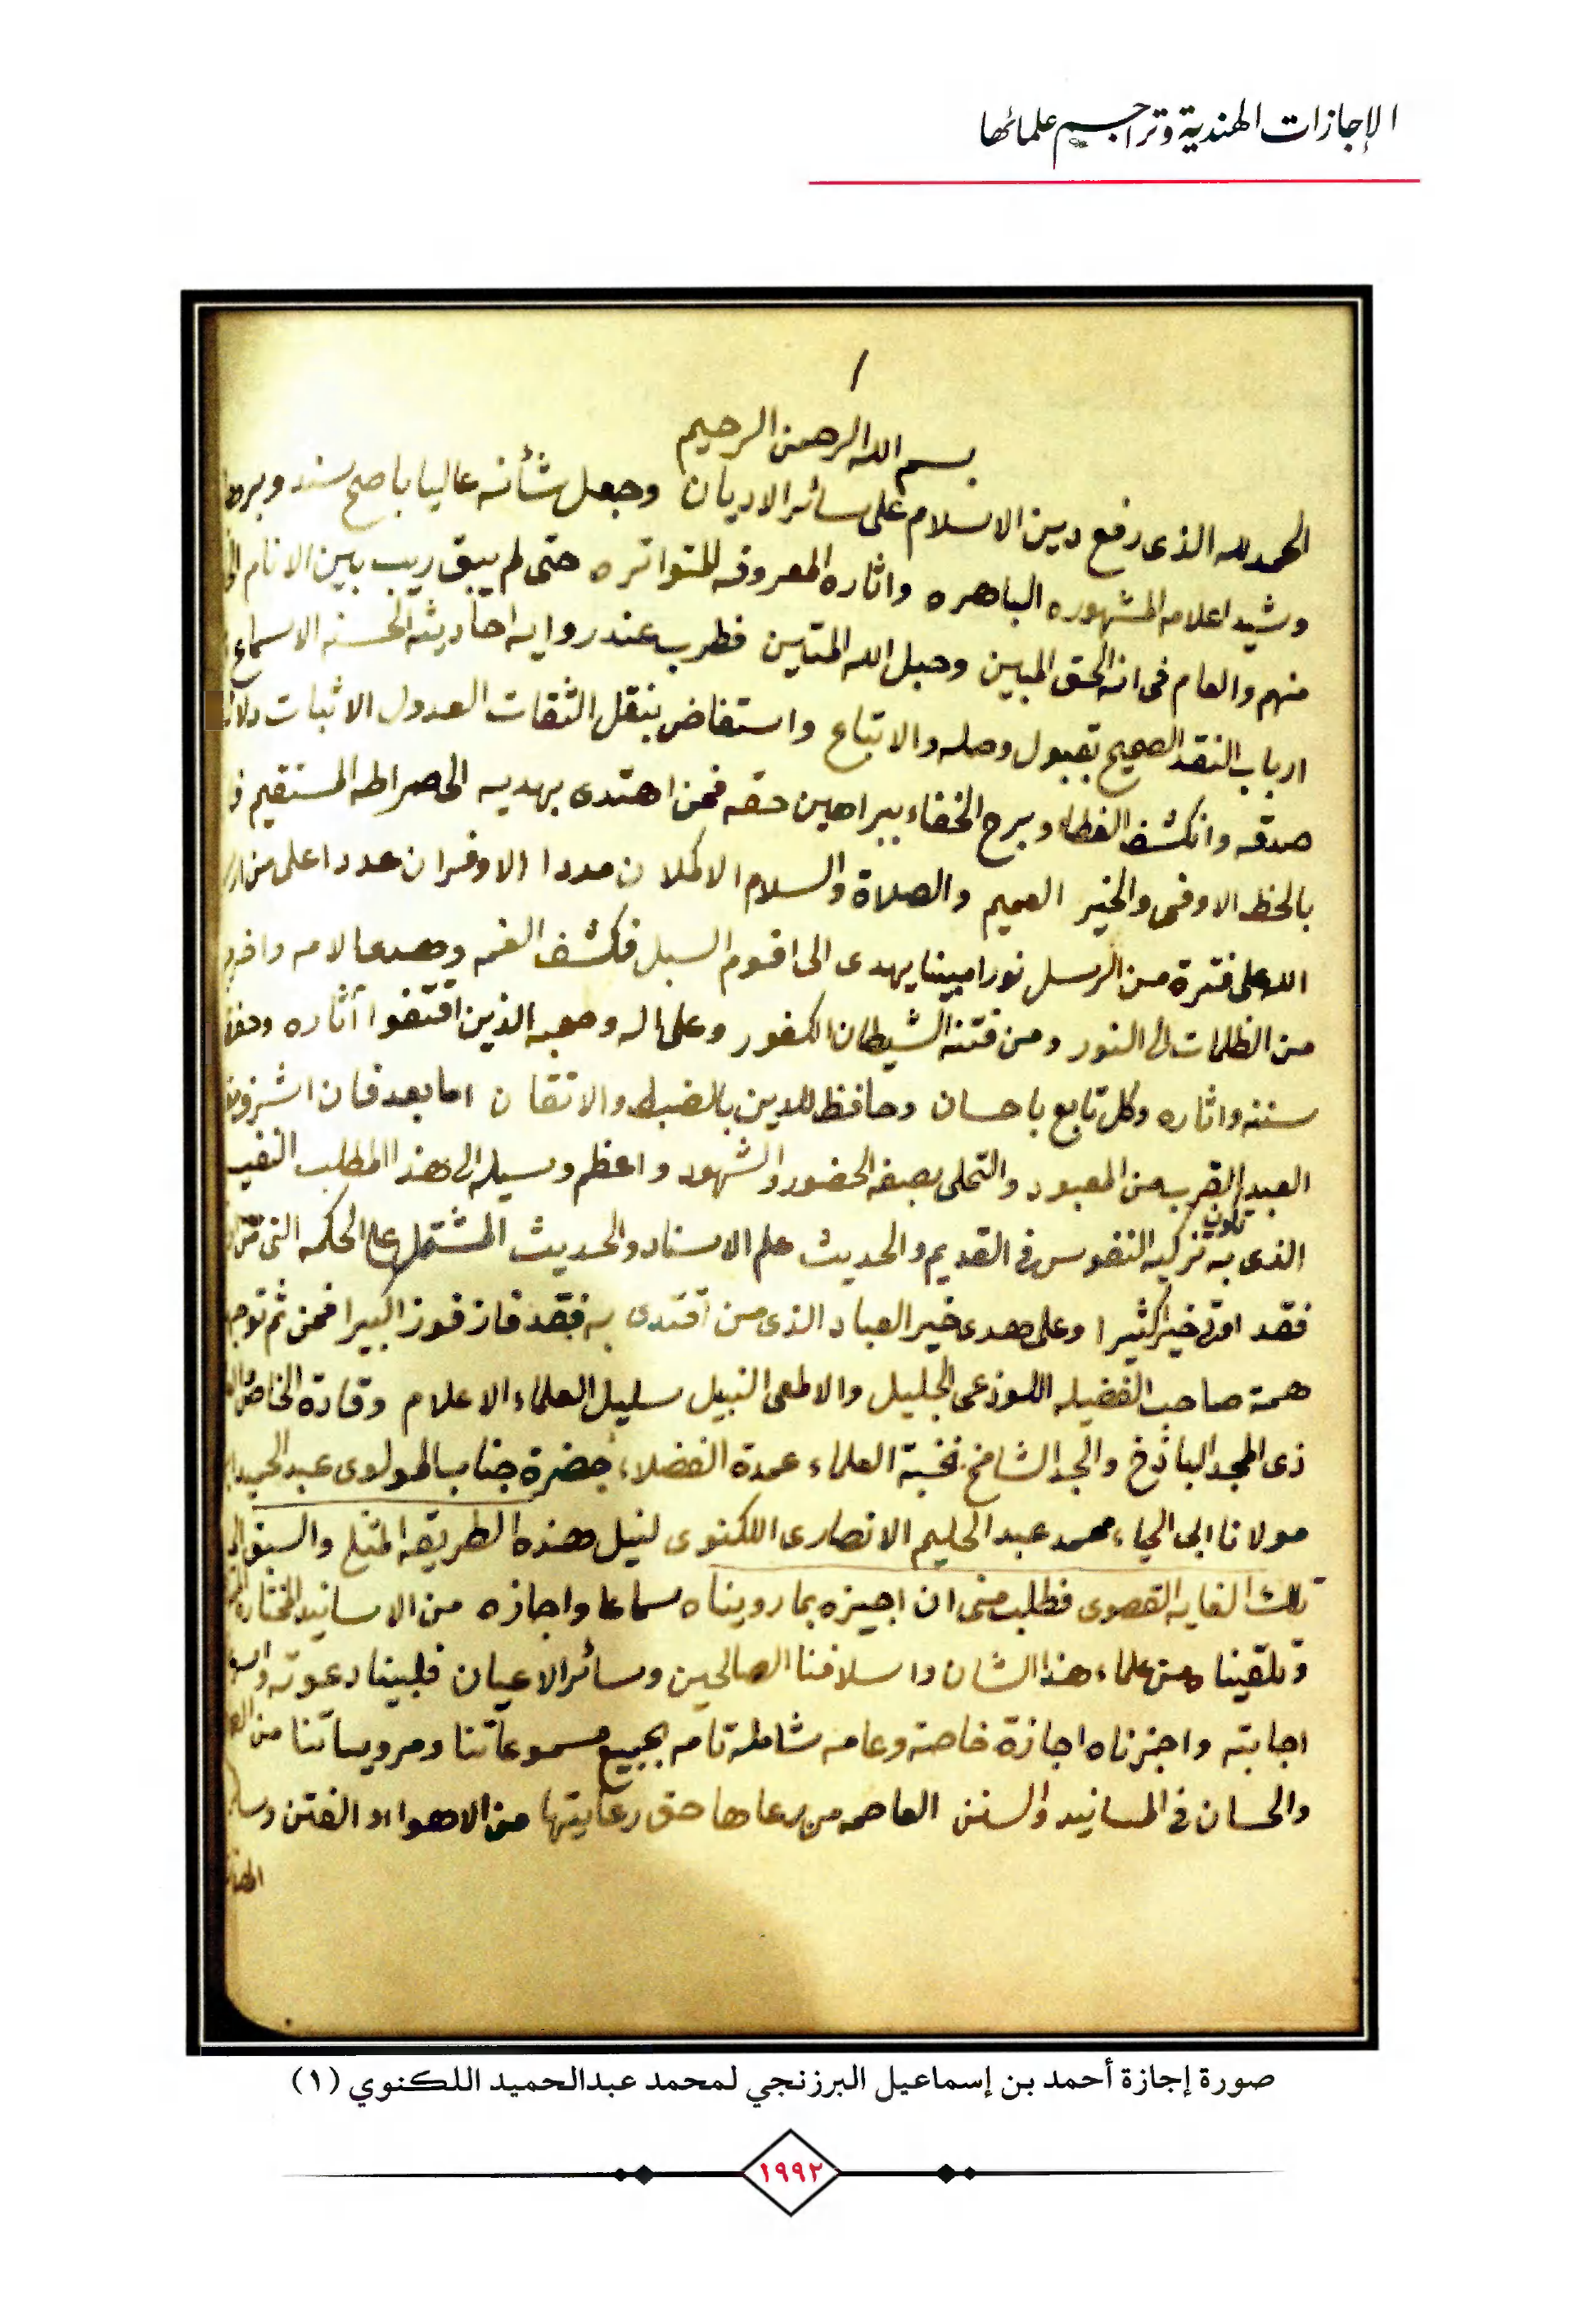 الإجازات الهندية وتراجيم علمائها
١
بسم الله الرحمن الرحيم
الحمد لله الذى رفع دين الاسلام على سائر الاديان وجعل شأنه عاليا باصح سند وبرها
وشيد اعلامه المشهوره الباهره واثاره المعروفه المتواتره حتى لم يبق ريب بين الانام
منهم والعام فى انه الحق المبين وحبل الله المتين فطرب عند رواية احاديثه الحسنه الاسماع
ارباب النقد الصحيح بقبول وصله والاتباع واستفاض بنقل الثقات العدول الاثبات دلائل
صدقه وانكشف الغطاء وبرح الخفاء ببراهين حقه فمن اهتدى بهديه الى صراطه المستقيم
بالحظ الاوفى والخير العميم والصلاة والسلام الاكملان مددا الاوفران عددا على من
الله على فترة من الرسل نورا مبينا يهدى الى اقوم السبل فكشف الغمه وهدى الامه واخرج
من الظلمات الى النور ومن فتنه الشيطان الكفور وعلى اله وصحبه الذين اقتفوا آثاره
سننه واثاره وكل تابع باحسان وحافظ للدين بالضبط والاتقان اما بعد فان اشرف
العبد القرب من المعبود والتحلى بصفه الحضور والشهود واعظم وسيله الى هذا المطلب النفيس
الذى به تكون تزكيه النفوس فى القديم والحديث علم الاسناد والحديث المشتمل على الحكمه التى
فقد اوتى خيرا كثيرا وعلى هدى خير العباد الذى من اقتدى به فقد فاز فوزا كبيرا فمن ثم توجه
همة صاحب الفضيله اللوذعى الجليل والالمعى النبيل سليل العلماء الاعلام وقادة الخاص
ذى المجد الباذخ والجد الشامخ نخبة العلماء عمدة الفضلاء حضرة جناب المولوى عبد الحميد
مولانا ابى الحياء محمد عبد الحليم الانصارى اللكنوى لنيل هذه الطريقه المثلى والسبق الى
تلك الغايه القصوى فطلب منى ان اجيزه بما رويناه سماعا واجازه من الاسانيد المختاره
وتلقينا من علماء هذا الشان واسلافنا الصالحين وسائر الاعيان فلبينا دعوته
اجابته واجزناه اجازة خاصة وعامه شامله تامه بجميع مسموعاتنا ومروياتنا من
والحسان فى المسانيد والسنن العاصمه من رعاها حق رعايتها من الاهواء والفتن
صورة إجازة أحمد بن إسماعيل البرزنجي لمحمد عبدالحميد اللكنوي (١)
١٩٩٢